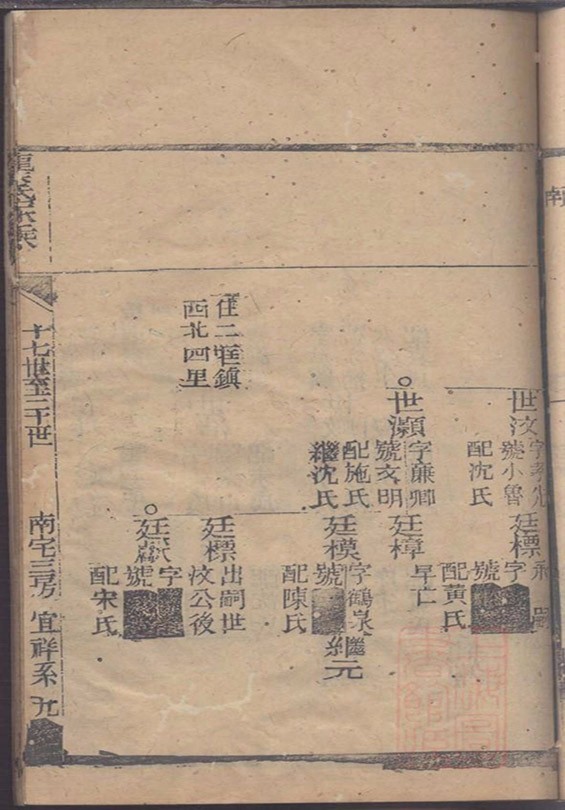 世汶
字孝先
號小魯
配沈氏
廷標
字
號
配黃氏
世灝
字廉卿
號文明
配施氏
繼沈氏
廷樟
早亡
廷模
字鶴泉
號
配陳氏
繼元
住二甲鎮
西北四里
廷標
出嗣世
汶公後
廷
字
號
配宋氏
十七世至二十世
南宅三房
宜祥系
九
南